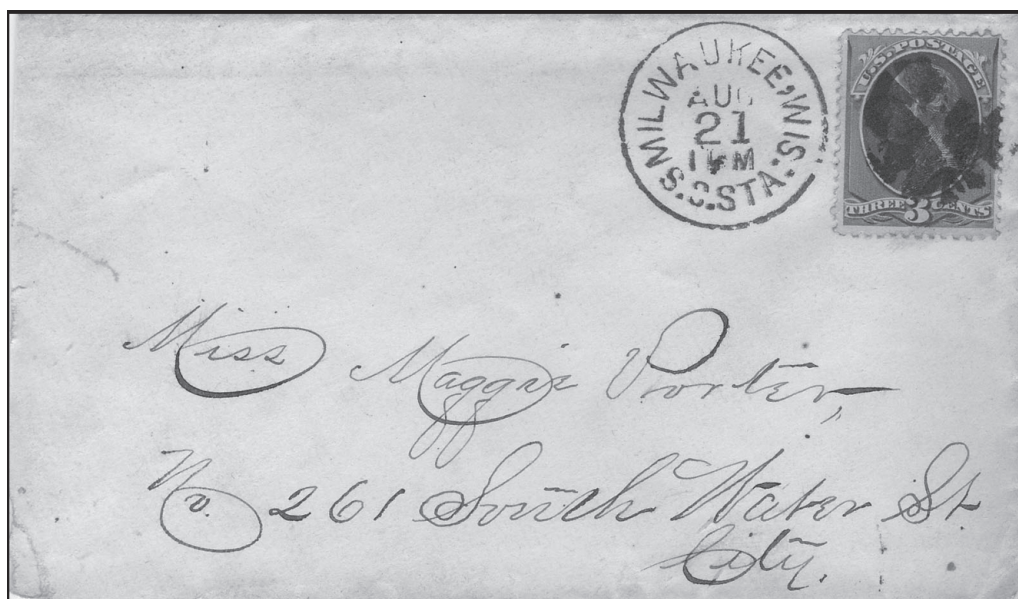 MILWAUKEE, WIS.
AUG
21
S.S.STA.
U.S. POSTAGE
THREE 3 CENTS
Miss Maggie Porter,
No. 261 South Water St
City.